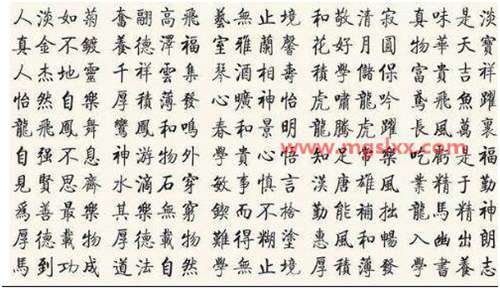 人淡如菊 奮翮高飛 藝無止境 和敬清寂 真味是淡
真金不鍍 養德澤福 室雅蘭馨 花好月圓 物華天寶
人杰地靈 千祥雲集 琴 學儲 富貴吉祥
怡然自樂 厚積薄發 心曠神怡 虎嘯龍吟 鳶飛魚躍
龍飛鳳舞 鸞鳳和鳴 春和景明 龍騰虎躍 長風萬裏
自强不息 神游物外 學貴心悟 知足常樂 吃虧是福
見賢思齊 水滴石穿 敏事慎言 漢唐雄風 業精于勤
爲善最樂 其樂無窮 鍥而不捨 勤能補拙 龍馬精神
厚德載物 厚德載物 難得糊塗 惠風和暢 入幽出朗
馬到功成 道法自然 學無止境 厚積薄發 學書養志
www.mgslxx.com